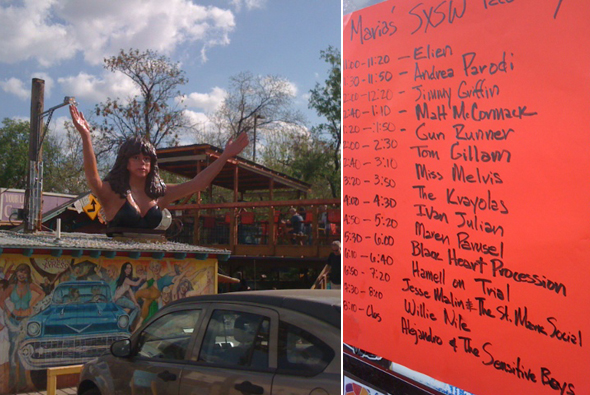 Maria's SXSW
:00 - 11:20 - Elien
:30 - 11:50 - Andrea Parodi
:00 - 12:20 - Jimmy Griffin
:40 - 1:10 - Matt McCormack
:20 - 1:50 - Gun Runner
:00 - 2:30 - Tom Gillam
2:40 - 3:10 Miss Melvis
3:20 - 3:50 The Krayolas
4:00 - 4:30 Ivan Julian
4:50 - 5:20 Maren Parusel
5:30 - 6:00 Black Heart Procession
6:10 - 6:40 Hamell on Trial
6:50 - 7:20 Jesse Malin & The St. Marks Social
7:30 - 8:00 Willie Nile
8:10 - Alejandro & The Sensitive Boys